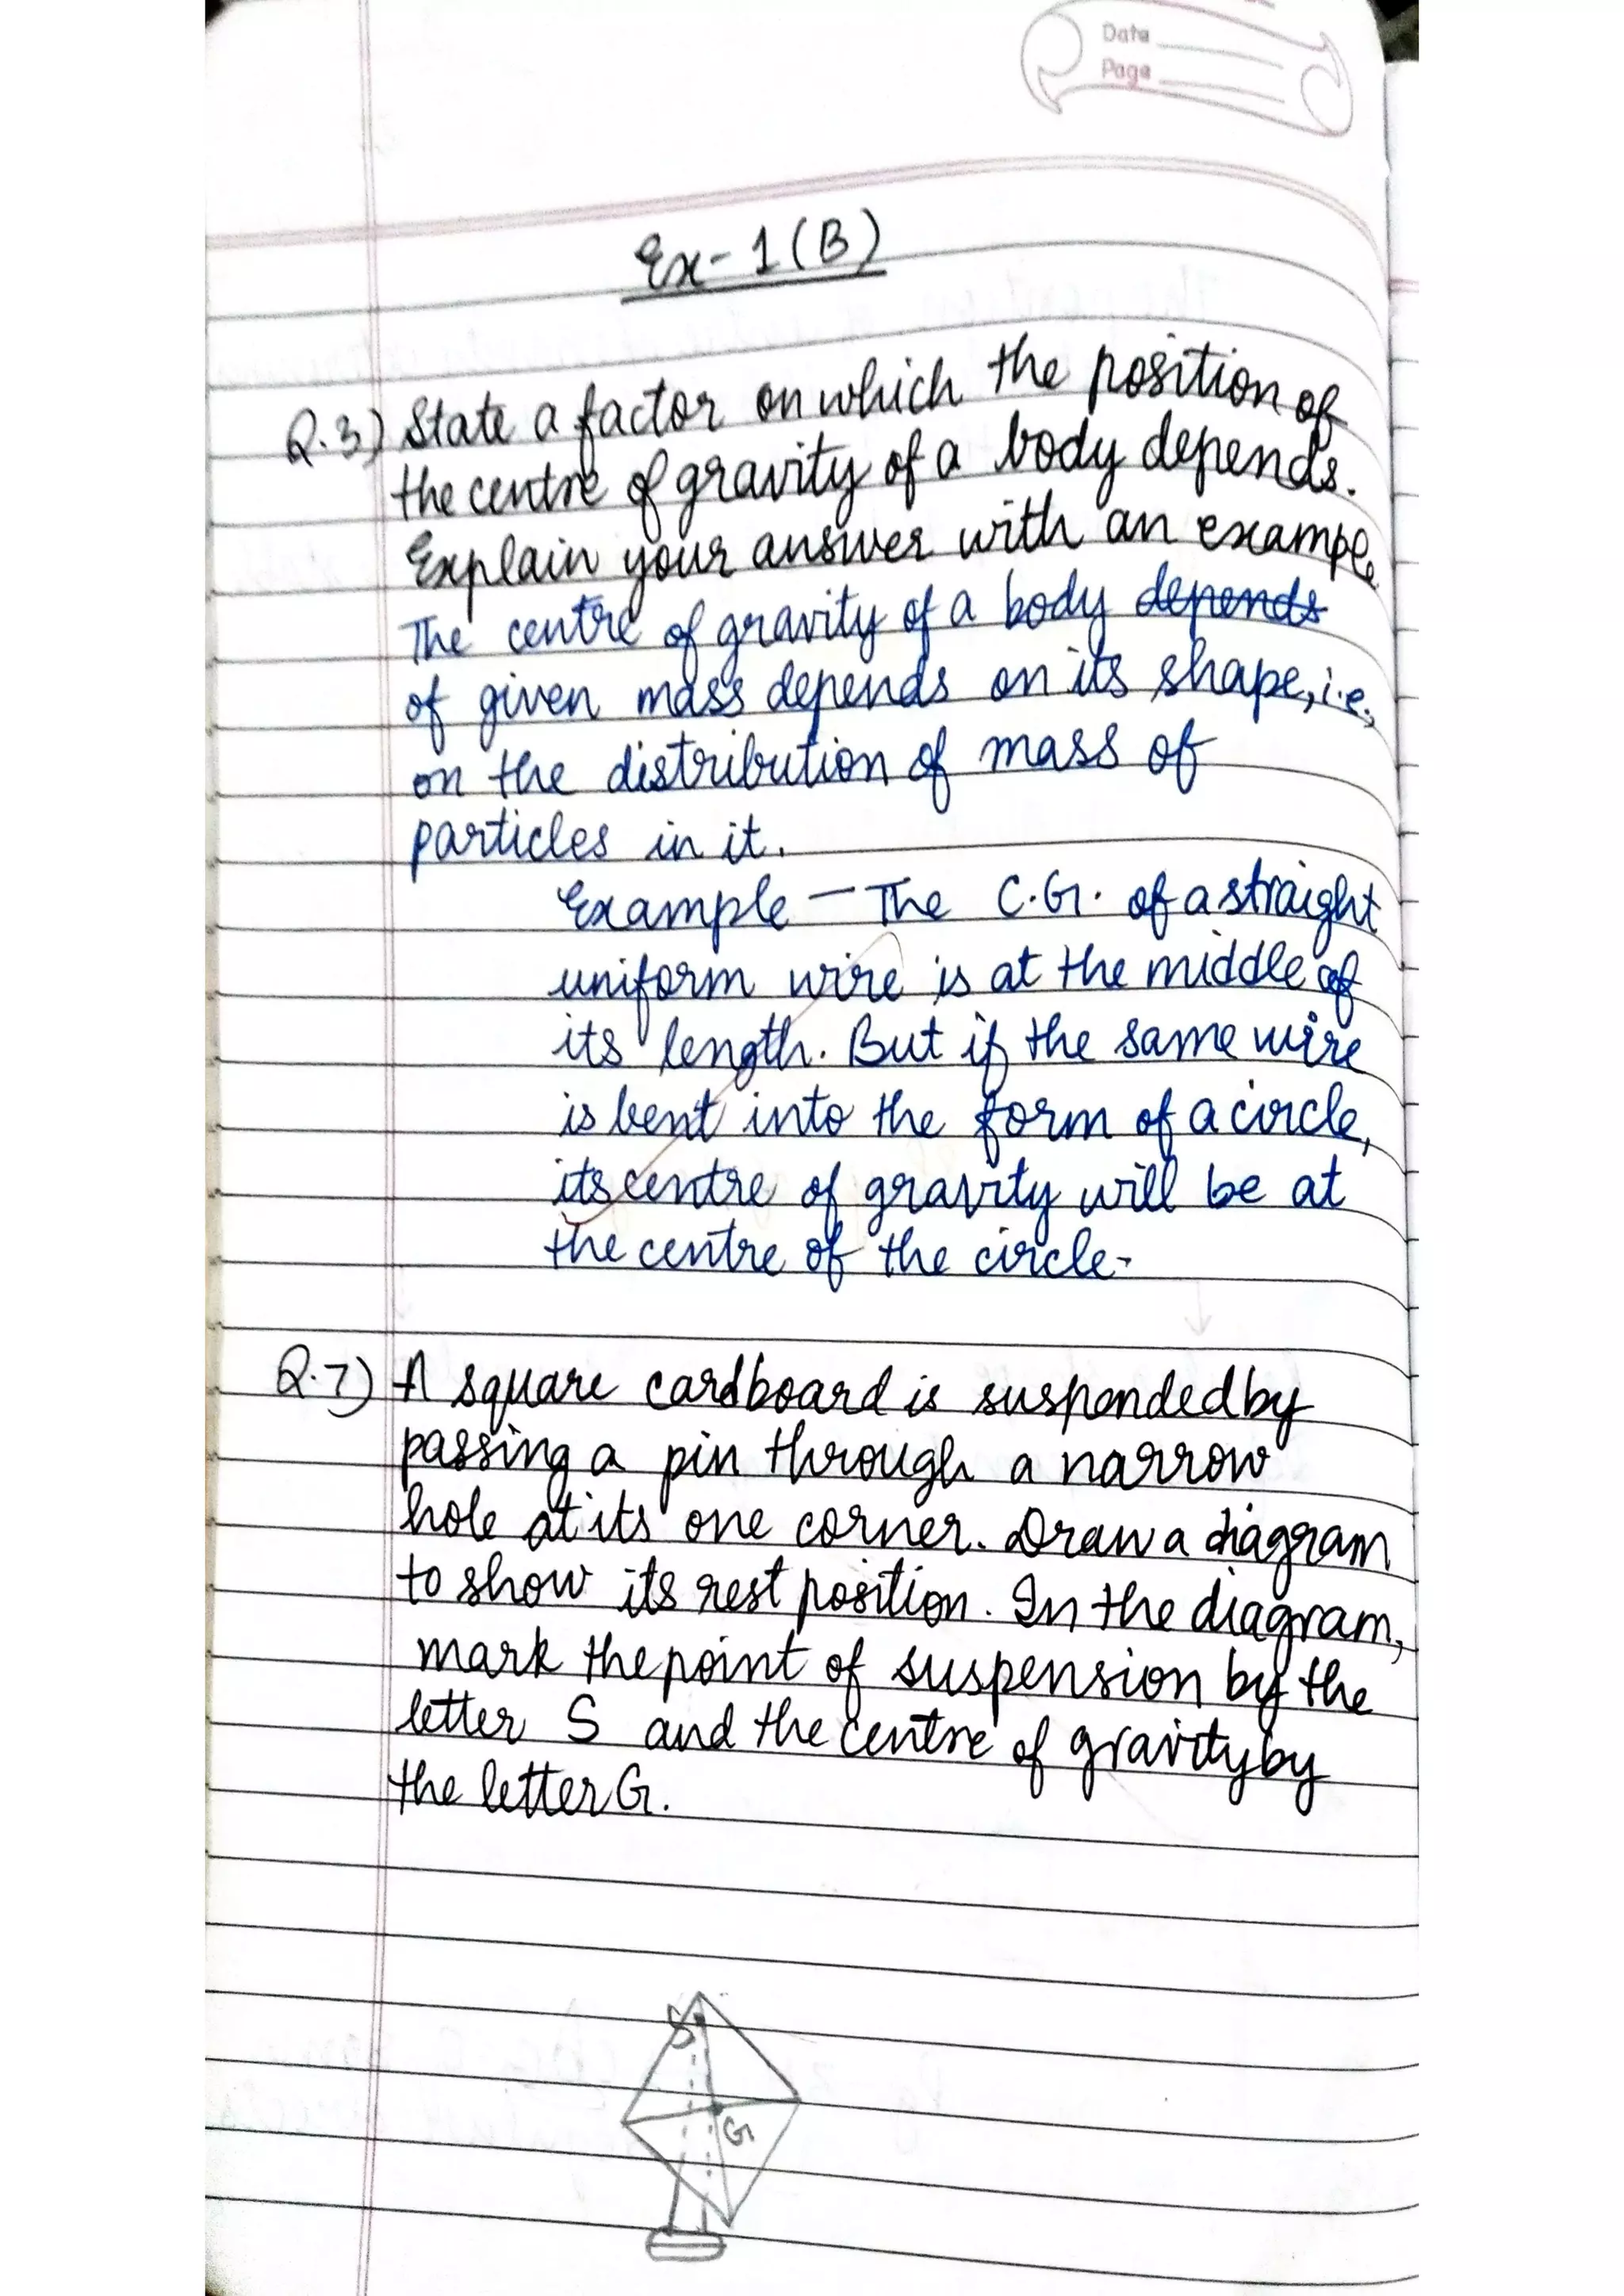 Date
Page
Ex-1(B)
Q.3) State a factor on which the position of
the centre of gravity of a body depends.
Explain your answer with an example
The centre of gravity of a body depends
of given mass depends on its shape, i.e.,
on the distribution of mass of
particles in it.
Example - The C.G. of a straight
uniform wire is at the middle of
its length. But if the same wire
is bent into the form of a circle,
its centre of gravity will be at
the centre of the circle.
Q.7) A square cardboard is suspended by
passing a pin through a narrow
hole at its one corner. Draw a diagram
to show its rest position. In the diagram,
mark the point of suspension by the
letter S and the centre of gravity by
the letter G.
S
G